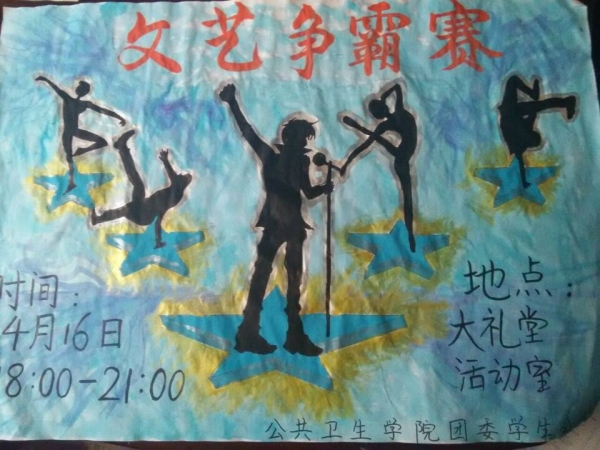 文艺争霸赛
时间：
4月16日
18:00-21:00
地点：
大礼堂
活动室
公共卫生学院团委学生